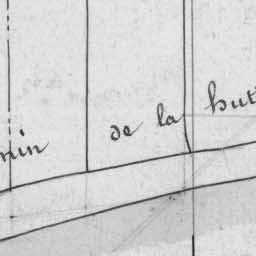 min de la hut